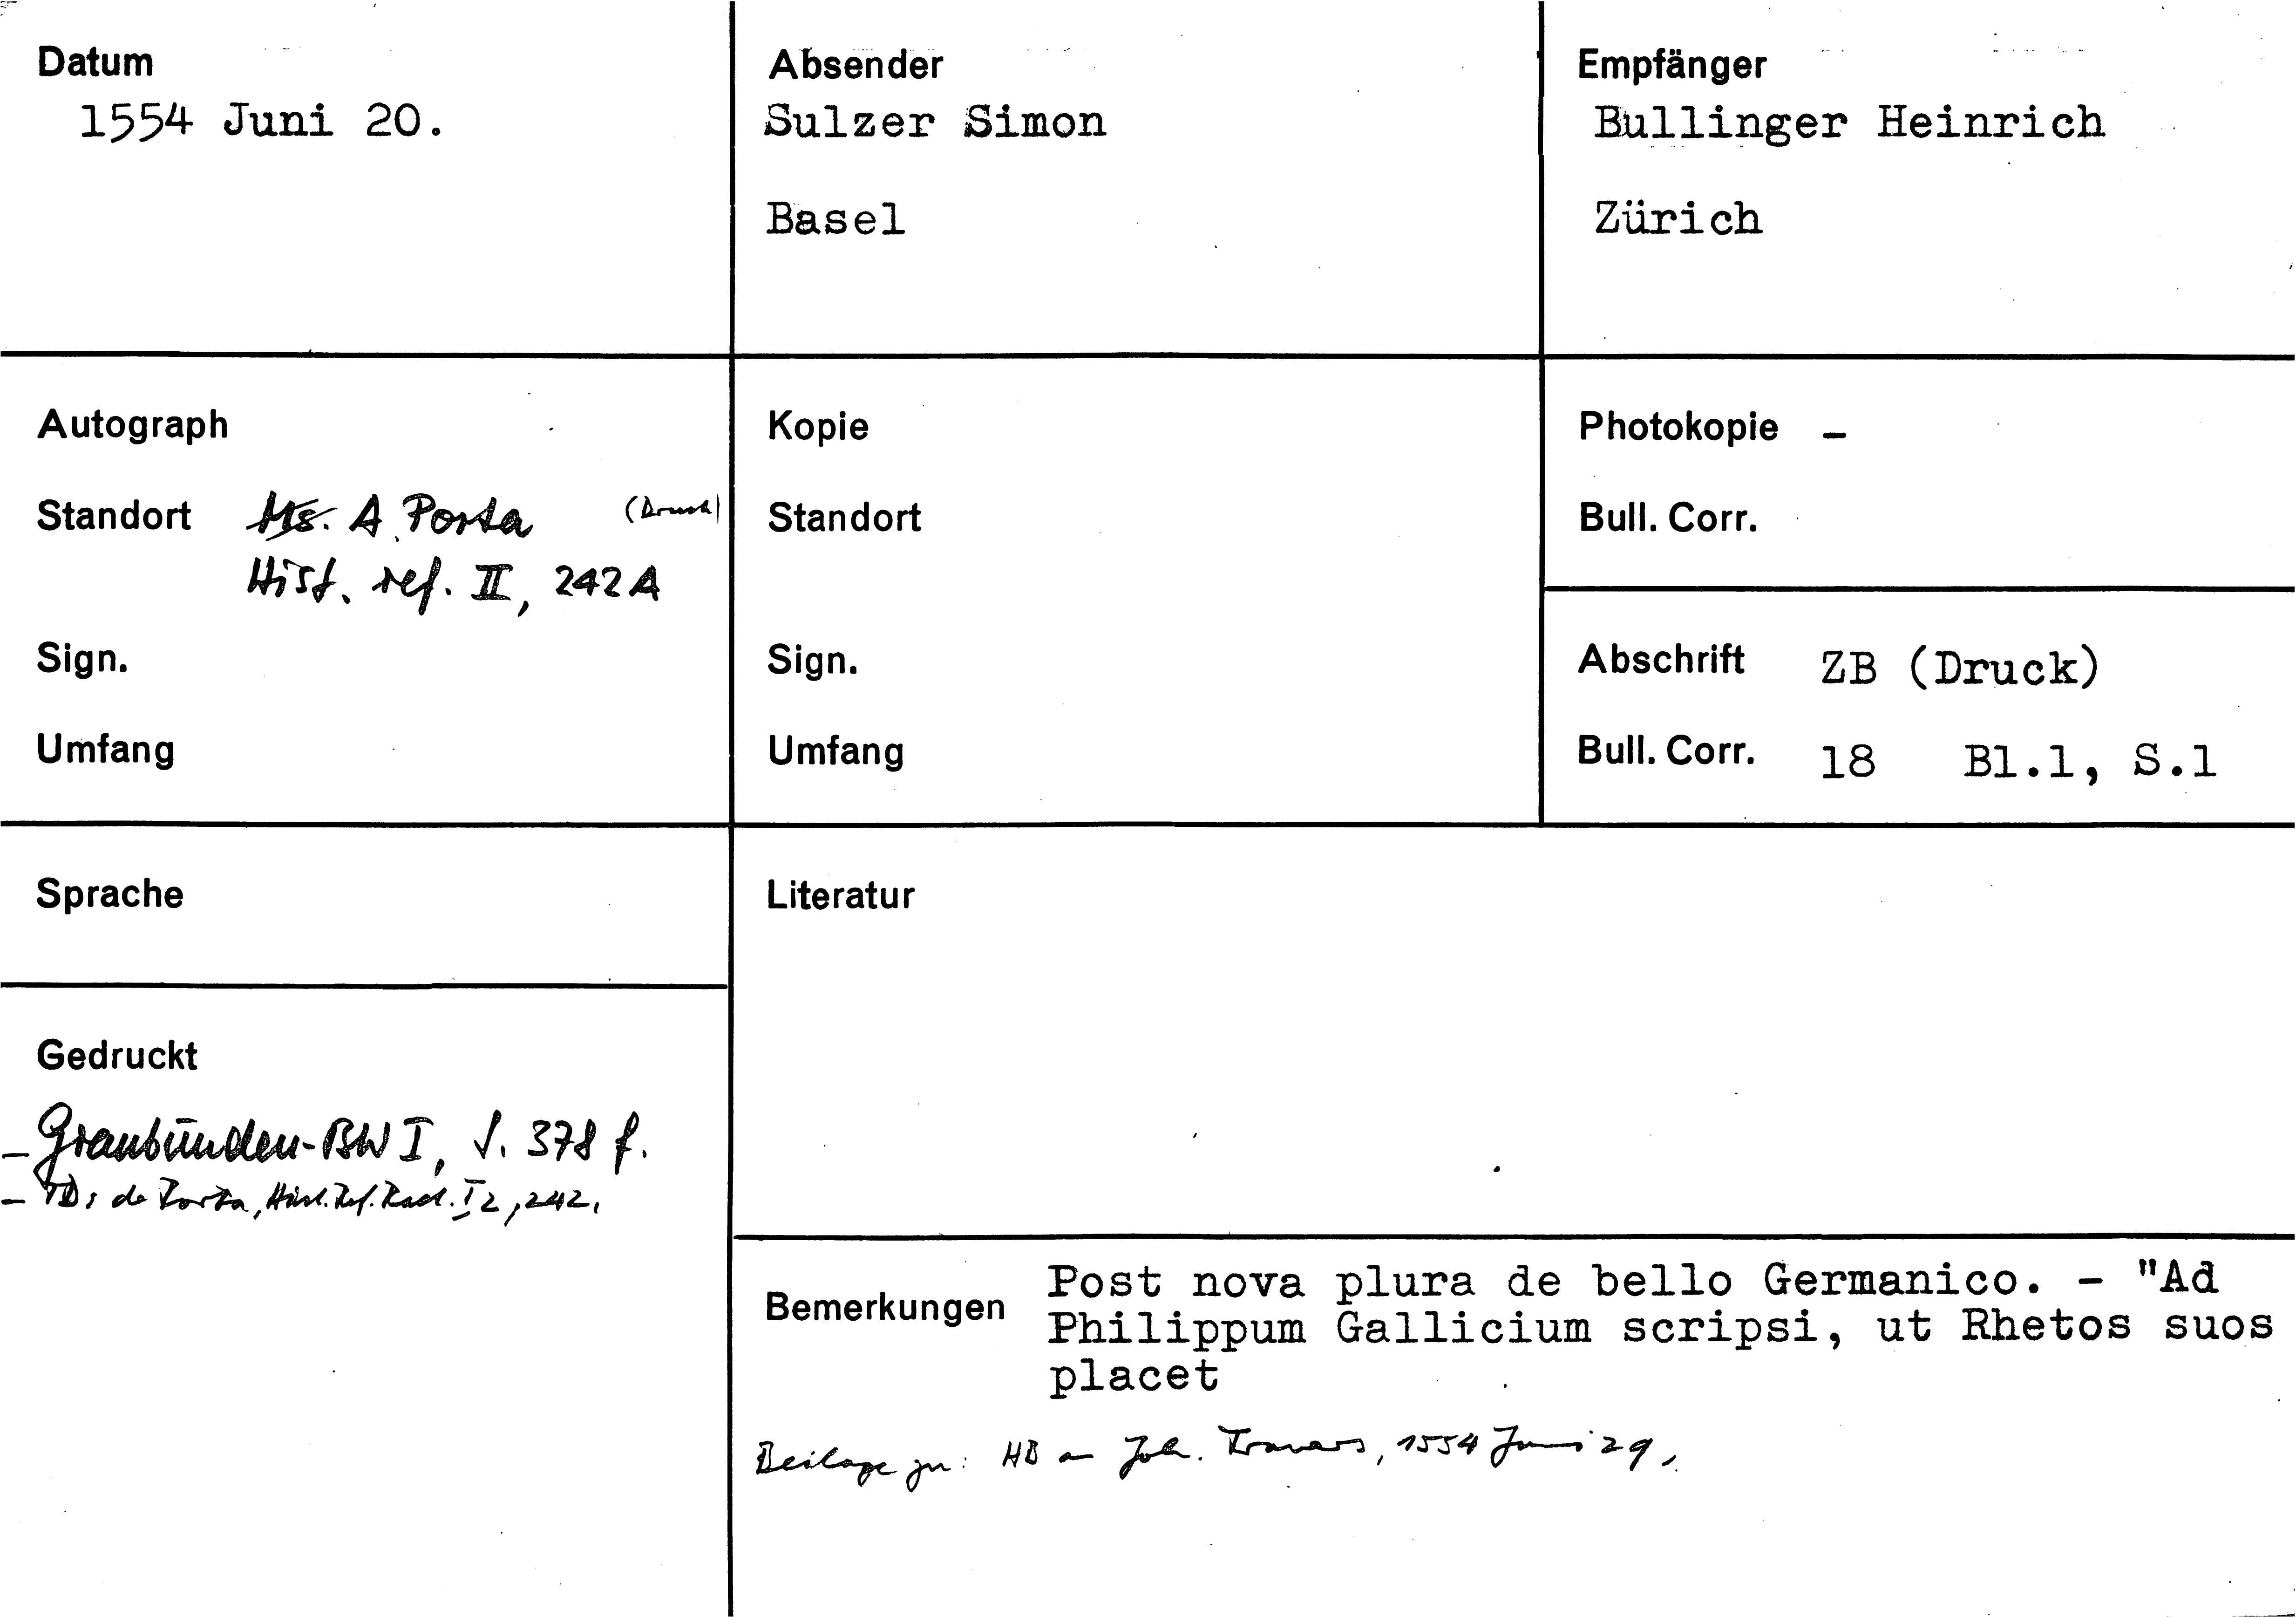 Datum
1554 Juni 20.
Absender
Sulzer Simon
Basel
Empfänger
Bullinger Heinrich
Zürich
Autograph
Standort Ms. A Porta (Druck)
Hist. ref. II, 242 A
Sign.
Umfang
Kopie
Standort
Sign.
Umfang
Photokopie –
Bull. Corr.
Abschrift ZB (Druck)
Bull. Corr. 18 Bl.1, S.1
Sprache
Gedruckt
– Graubünden-BW I, S. 378 f.
– TD: de Porta, Hist. Ref. Raet. I 2, 242.
Literatur
Bemerkungen
Post nova plura de bello Germanico. – "Ad
Philippum Gallicium scripsi, ut Rhetos suos
placet
Beilage zu: HB an Joh. Travers, 1554 Juni 29.